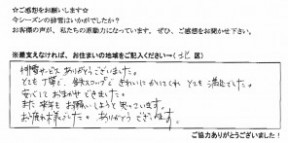 ☆ご感想をお願いします☆
今シーズンの除雪はいかがでしたか？
お客様の声が、私たちの原動力になっています。ぜひ、ご感想をお聞かせ下さい。
※差支えなければ、お住まいの地域をご記入ください→(北 区)
排雪サービス ありがとうございました。
とても丁寧で、きれいに とても 満足でした。
安心して おまかせ できました。
また 来年も お願いしようと思っています。
お疲れ様でした。ありがとう ございます。
ご協力ありがとうございました！